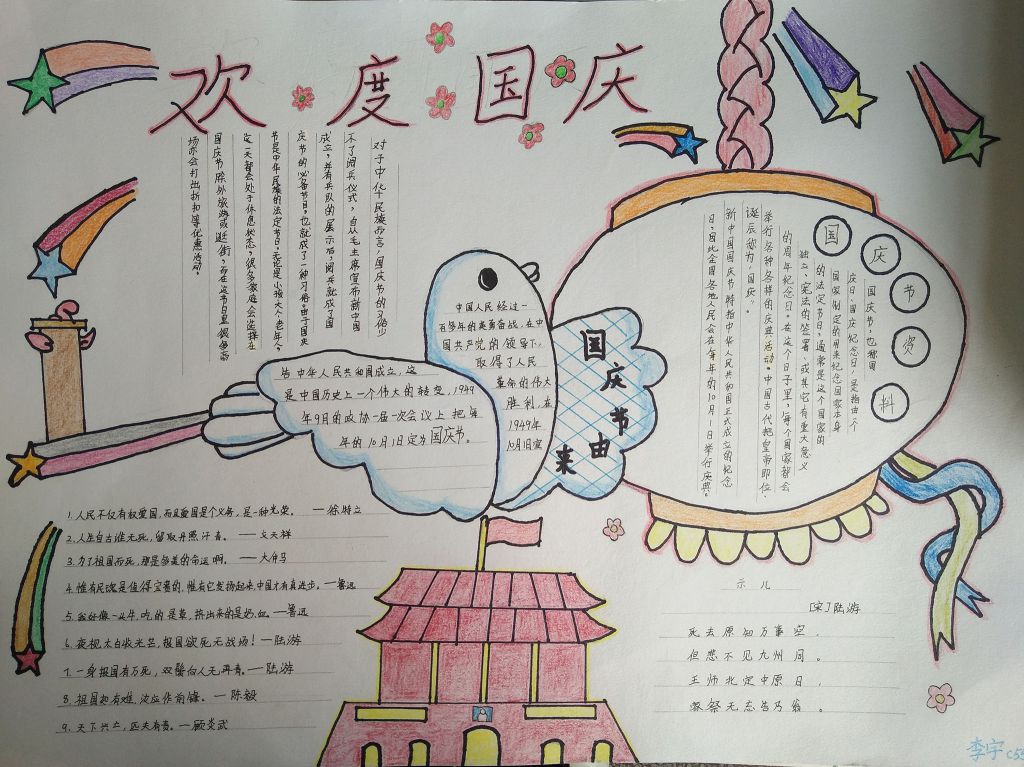 欢度国庆
对于中华民族而言,国庆节的习俗少
不了阅兵仪式,自从毛主席宣布新中国
成立,并有兵队的展示后,阅兵就成了国
庆节的必备节目,也就成了一种习俗。由于国庆
节是中华民族的法定节日,无论是小孩大人,老年人,
这一天都会处于休息状态,很多家庭会选择在
国庆节除外旅游或逛街,而在这节日里很多商
场亦会打出折扣等优惠活动。
国庆节资料
国庆节,也称国
庆日、国庆纪念日,是指由一个
国家制定的用来纪念国家本身
的法定节日,通常是这个国家的
独立、宪法的签署、或其它有重大意义
的周年纪念日。在这个日子里,每个国家都会
举行各种各样的庆典活动。中国古代把皇帝即位、
诞辰称为“国庆”。
新中国国庆节特指中华人民共和国正式成立的纪念
日,因此全国各地人民会在每年的10月1日举行庆典。
国庆节由来
中国人民经过一
百多年的英勇奋战,在中
国共产党的领导下,
取得了人民
革命的伟大
胜利,在
1949年
10月1日宣
告中华人民共和国成立,这
是中国历史上一个伟大的转变,1949
年9月的政协一届一次会议上把每
年的10月1日定为国庆节。
1.人民不仅有权爱国,而且爱国是个义务,是一种光荣。——徐特立
2.人生自古谁无死,留取丹照汗青。——文天祥
3.为了祖国而死,那是多美的命运啊。——大仲马
4.惟有民魂是值得宝贵的,惟有它发扬起来,中国才有真进步。—鲁迅
5.我好像一头牛,吃的是草,挤出来的是奶,血。—鲁迅
6.夜视太白收光芒,报国欲死无战场!—陆游
7.一身报国有万死,双鬓向人无再青。—陆游
8.祖国如有难,汝应作前锋。—陈毅
9.天下兴亡,匹夫有责。—顾炎武
示儿
[宋]陆游
死去原知万事空,
但悲不见九州同。
王师北定中原日,
家祭无忘告乃翁。
李宇 c55